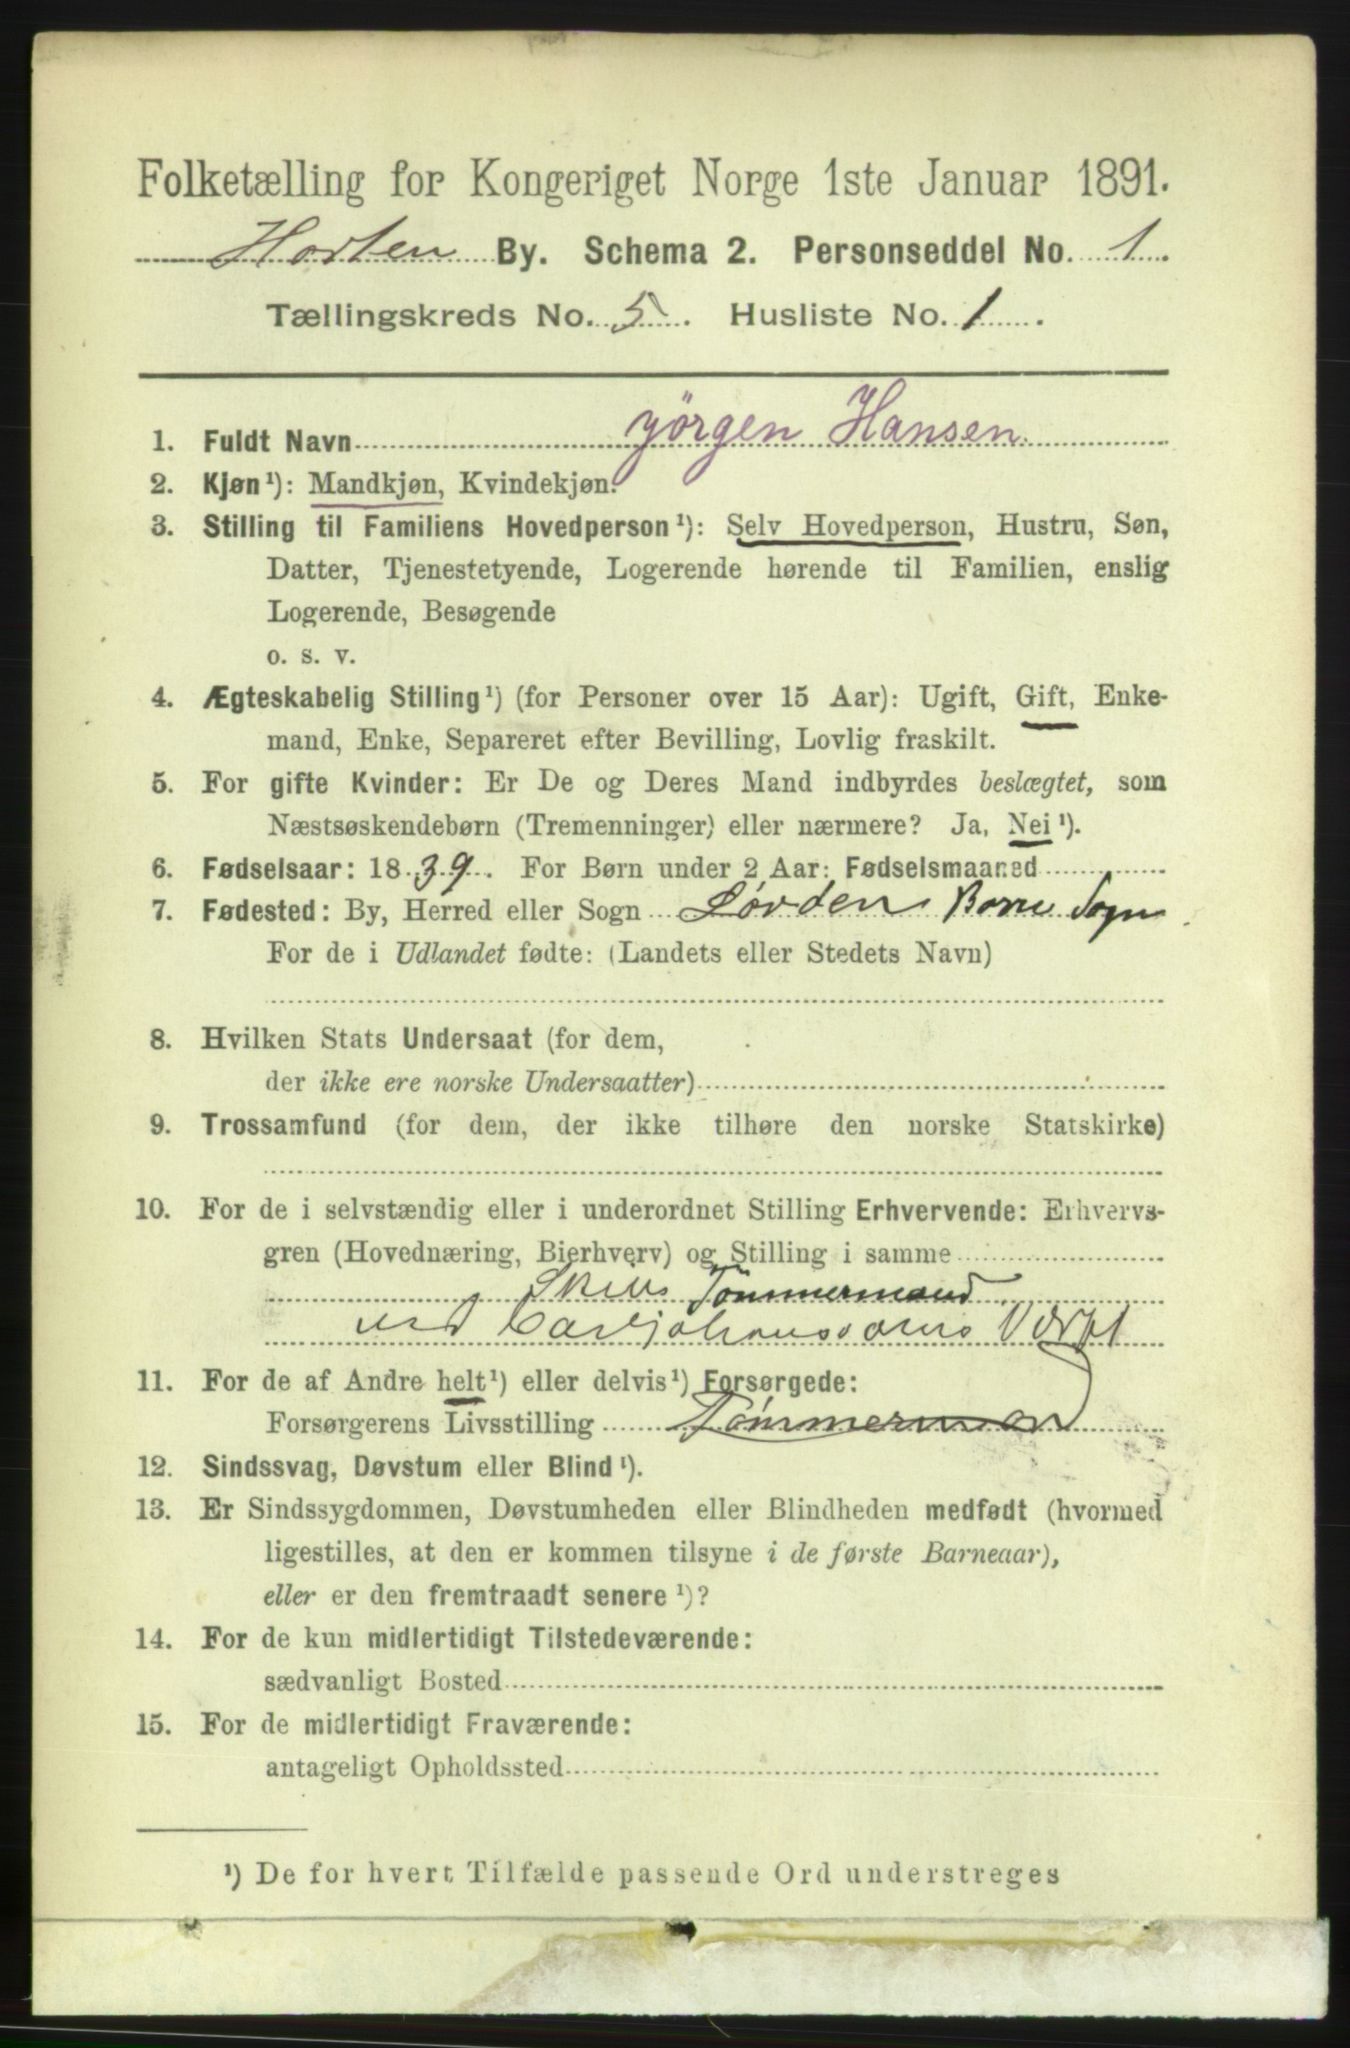 Folketælling for Kongeriget Norge 1ste Januar 1891.
Horten By. Schema 2. Personseddel No. 1.
Tællingskreds No. 5. Husliste No. 1.
1. Fuldt Navn Jörgen Hansen.
2. Kjøn¹): Mandkjøn, Kvindekjøn.
3. Stilling til Familiens Hovedperson¹): Selv Hovedperson, Hustru, Søn,
Datter, Tjenestetyende, Logerende hørende til Familien, enslig
Logerende, Besøgende
o. s. v.
4. Ægteskabelig Stilling¹) (for Personer over 15 Aar): Ugift, Gift, Enke-
mand, Enke, Separeret efter Bevilling, Lovlig fraskilt.
5. For gifte Kvinder: Er De og Deres Mand indbyrdes beslægtet, som
Næstsøskendebørn (Tremenninger) eller nærmere? Ja, Nei¹).
6. Fødselsaar: 1839. For Børn under 2 Aar: Fødselsmaaned
7. Fødested: By, Herred eller Sogn Lövden Borre Sogn
For de i Udlandet fødte: (Landets eller Stedets Navn)
8. Hvilken Stats Undersaat (for dem,
der ikke ere norske Undersaatter)
9. Trossamfund (for dem, der ikke tilhøre den norske Statskirke)
10. For de i selvstændig eller i underordnet Stilling Erhvervende: Erhvervs-
gren (Hovednæring, Bierhverv) og Stilling i samme
Skibs Tömmermand
ved Carljohansværns Værft
11. For de af Andre helt¹) eller delvis¹) Forsørgede:
Forsørgerens Livsstilling Tömmerman
12. Sindssvag, Døvstum eller Blind¹).
13. Er Sindssygdommen, Døvstumheden eller Blindheden medfødt (hvormed
ligestilles, at den er kommen tilsyne i de første Barneaar),
eller er den fremtraadt senere¹)?
14. For de kun midlertidigt Tilstedeværende:
sædvanligt Bosted
15. For de midlertidigt Fraværende:
antageligt Opholdssted
¹) De for hvert Tilfælde passende Ord understreges